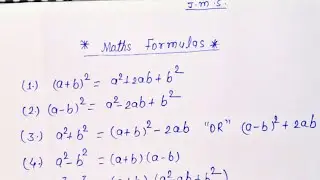 J.M.S.
* Maths Formulas *
(1.) (a+b)² = a²+2ab+b²
(2) (a-b)² = a²-2ab+b²
(3.) a²+b² = (a+b)²-2ab "OR" (a-b)²+2ab
(4.) a²-b² = (a+b)(a-b)